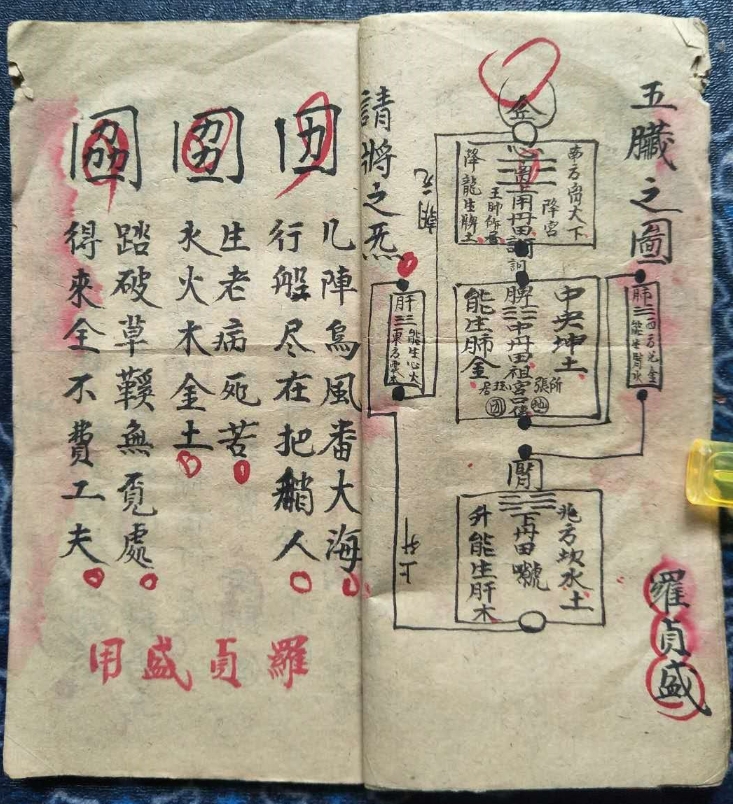 五臟之圖
羅貞盛
南方丙火下
降宮
心
上用丹田訶
降龍生脾土
朝元
肺
西方兌金
能生腎水
中央坤土
脾
中丹田祖宮
能生肺金
肝
能生心火
東方震木
腎
北方坎水土
下丹田號
升能生肝木
上升
請將之炁
几陣烏風番大海
行船尽在把艄人
生老病死苦
水火木金土
踏破草鞋無覓處
得來全不費工夫
羅貞盛用